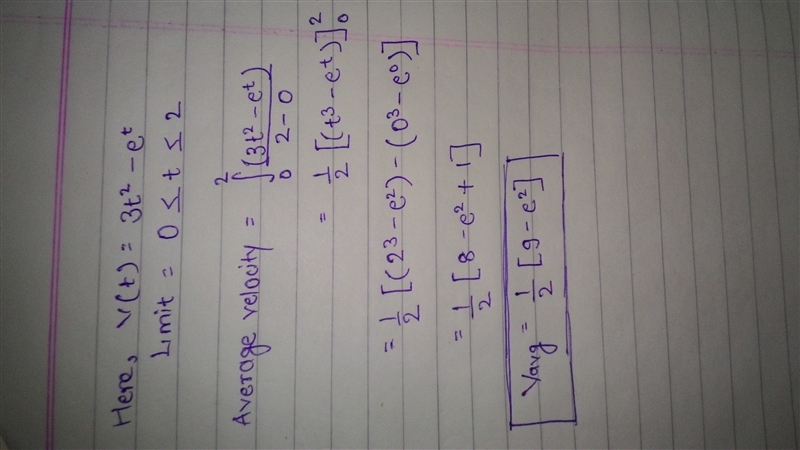 Here, v(t) = 3t² - eᵗ
Limit = 0 ≤ t ≤ 2
Average velocity = ∫₀² (3t² - eᵗ) / 2 - 0
= 1/2 [(t³ - eᵗ)]₀²
= 1/2 [(2³ - e²) - (0³ - e⁰)]
= 1/2 [8 - e² + 1]
Vavg = 1/2 [9 - e²]